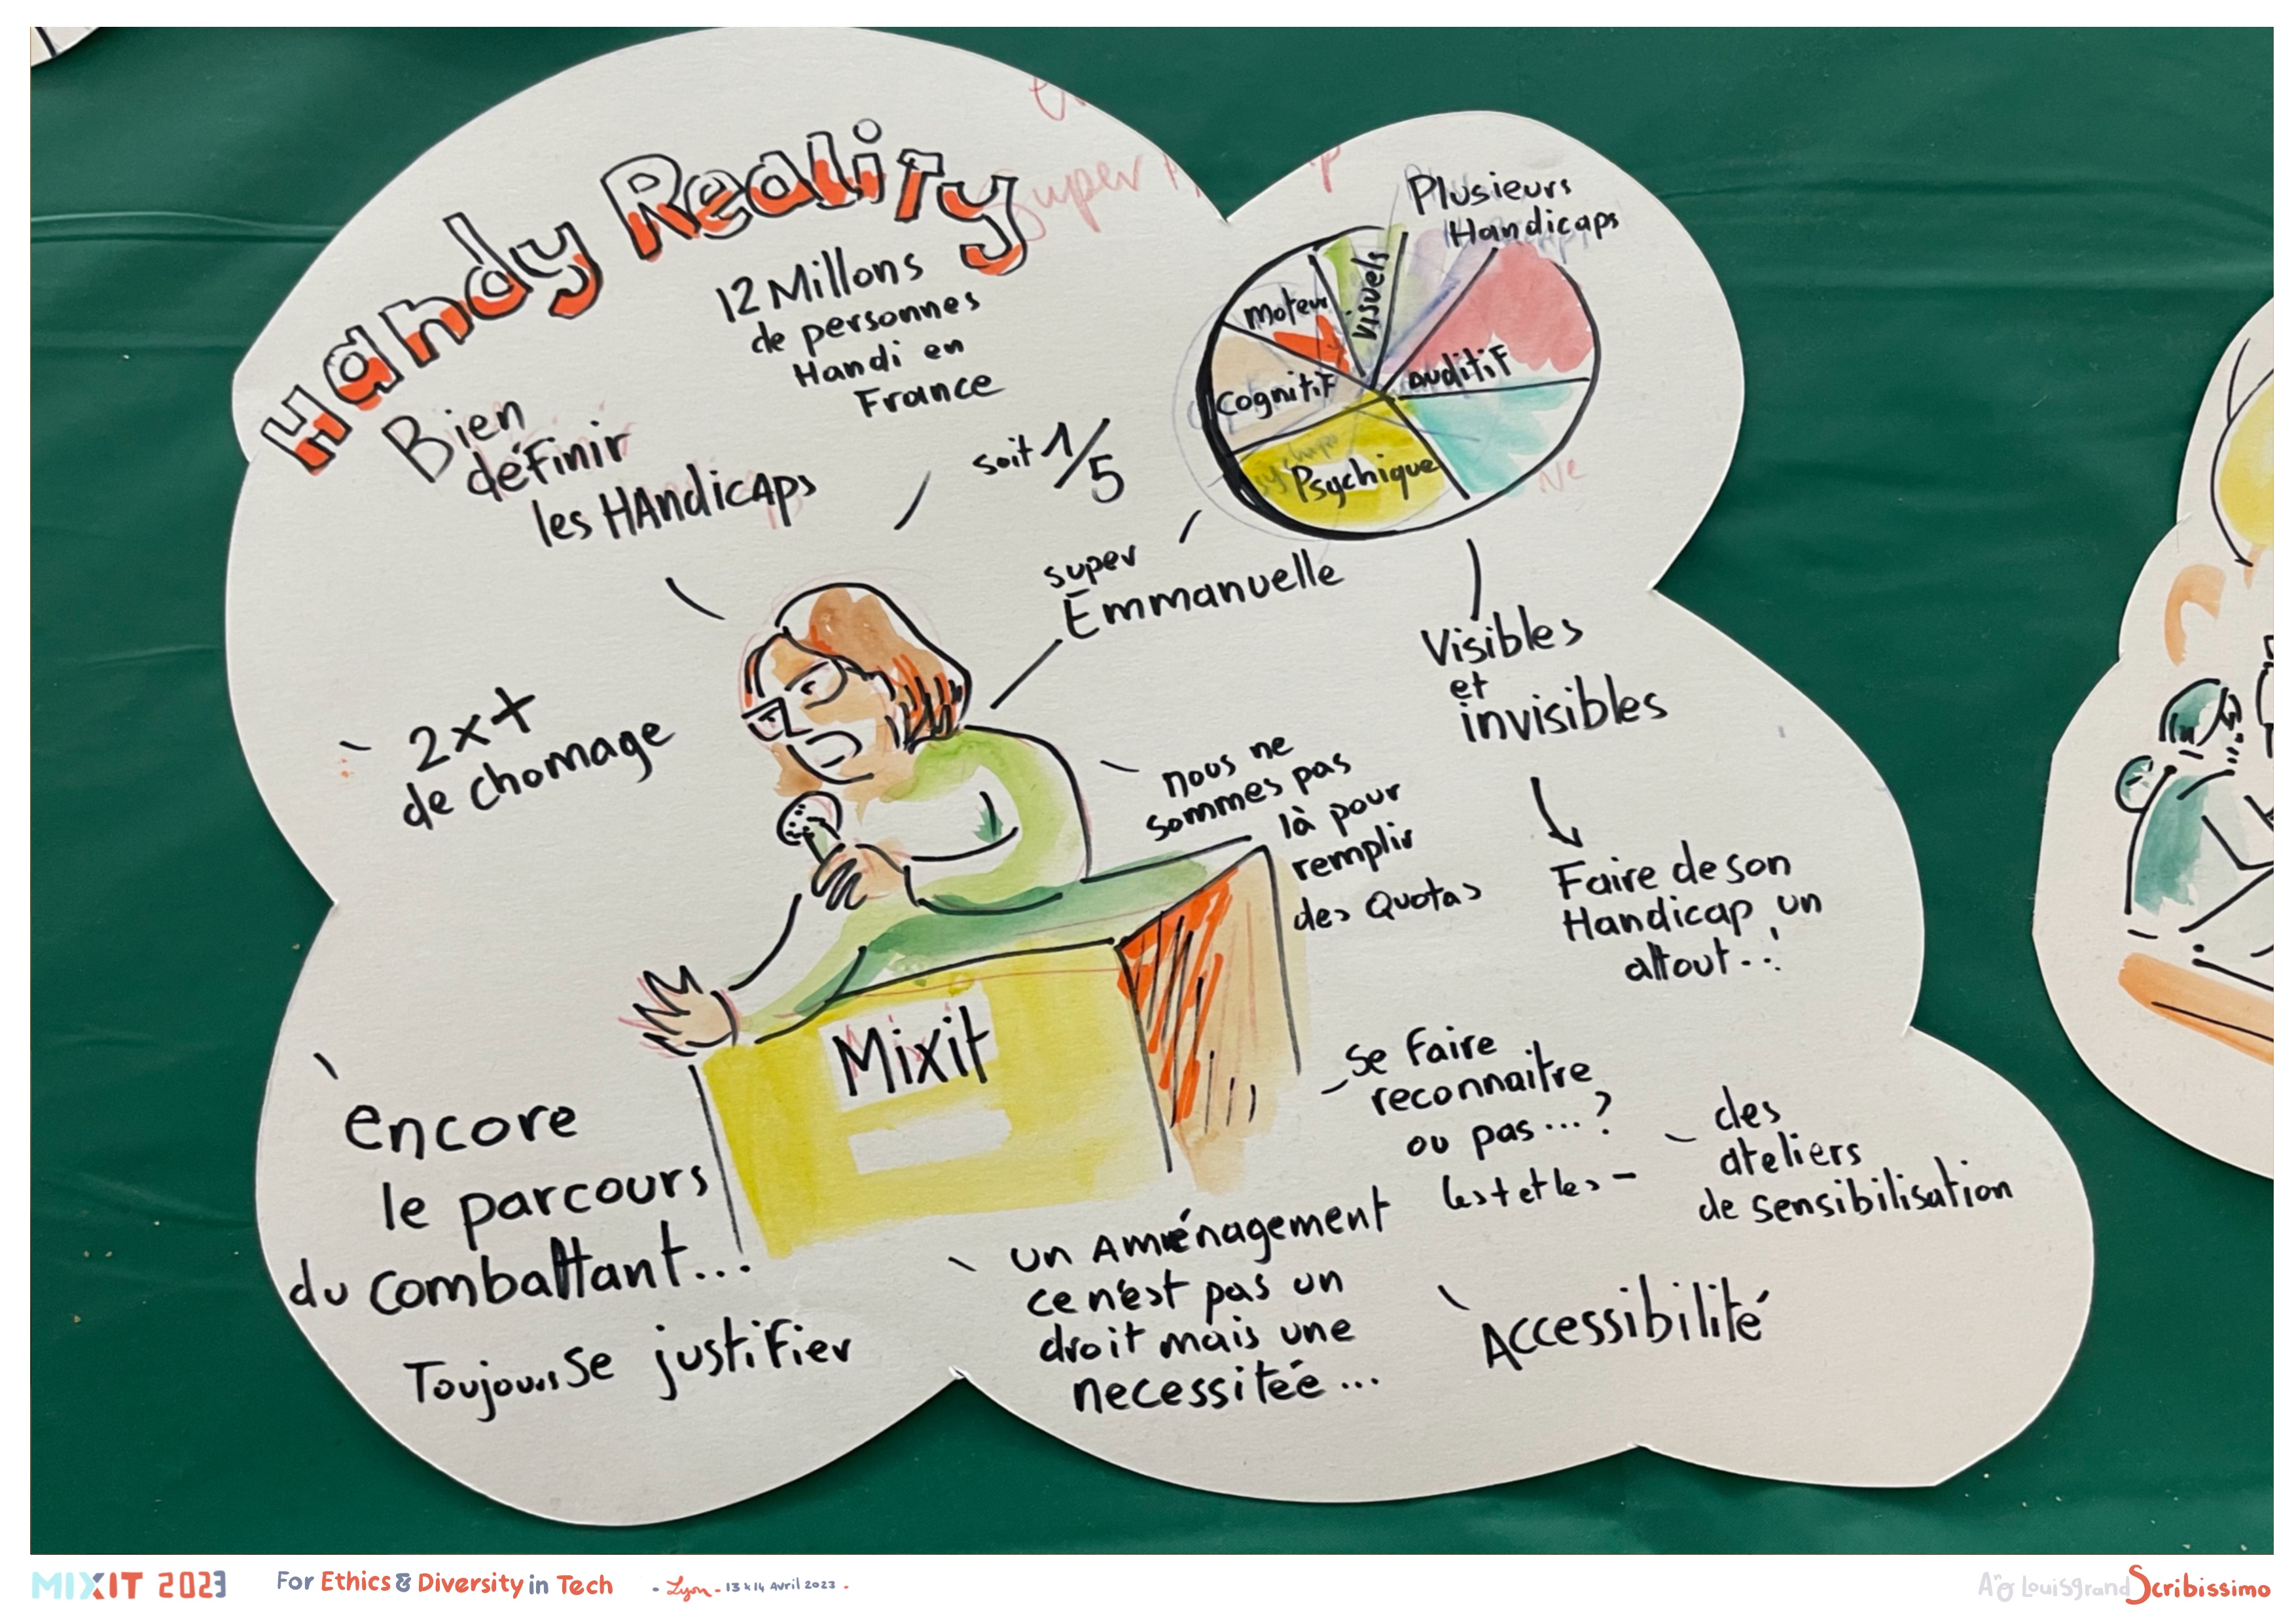 Handy Reality
12 Millons
de personnes
Handi en
France
soit 1/5
Bien
définir
les HAndicAps
Plusieurs
Handicaps
moteur
visuels
auditif
cognitif
Psychique
super
Emmanuelle
Visibles
et
invisibles
Faire de son
Handicap un
attout..!
2x+
de chomage
nous ne
sommes pas
là pour
remplir
des Quotas
Mixit
encore
le parcours
du combattant...
Toujours Se justifier
Se faire
reconnaitre
ou pas...?
les + et les -
des
ateliers
de sensibilisation
un Aménagement
ce n'est pas un
droit mais une
necessitée...
Accessibilité
MIXIT 2023
For Ethics & Diversity in Tech
- Lyon - 13 & 14 Avril 2023 -
Louisgrand Scribissimo